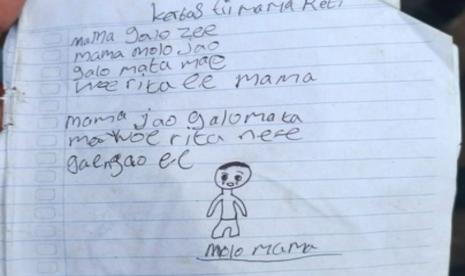 kertas tii mama Reti
mama galo zee
mama molo Jao
galo mata mae
woe rita ee mama
mama jao galo mata
mae woe rita nee
gaengao ee
molo mama